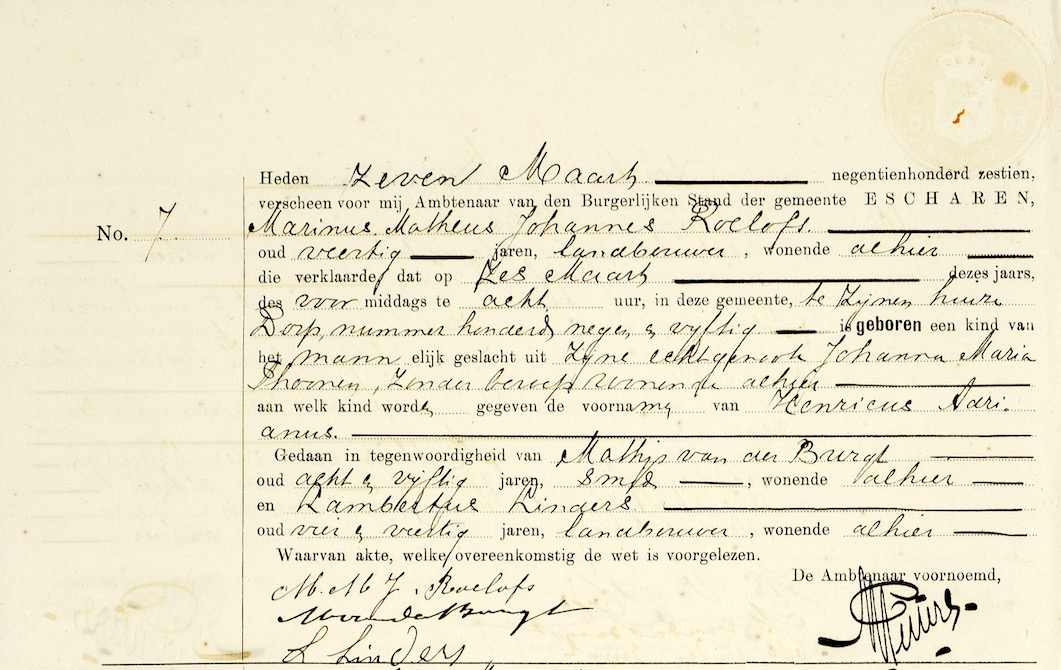 Heden zeven Maart negentienhonderd zestien,
verscheen voor mij, Ambtenaar van den Burgerlijken Stand der gemeente ESCHAREN,
No. 7 Marinus Matheus Johannes Roelofs
oud veertig jaren, landbouwer, wonende alhier
die verklaarde, dat op zes Maart dezes jaars,
des voor middags te acht uur, in deze gemeente, te zijnen huize
Dorp, nummer honderd negen & vijftig is geboren een kind van
het mann elijk geslacht uit zijne echtgenoote Johanna Maria
Thoonen, zonder beroep wonende alhier
aan welk kind worde gegeven de voorname van Henricus Adri-
anus.
Gedaan in tegenwoordigheid van Mathijs van der Burgt
oud acht & vijftig jaren, smid, wonende alhier
en Lambertus Linders
oud vier & veertig jaren, landbouwer, wonende alhier
Waarvan akte, welke overeenkomstig de wet is voorgelezen.
De Ambtenaar voornoemd,
M. M. J. Roelofs
L Linders